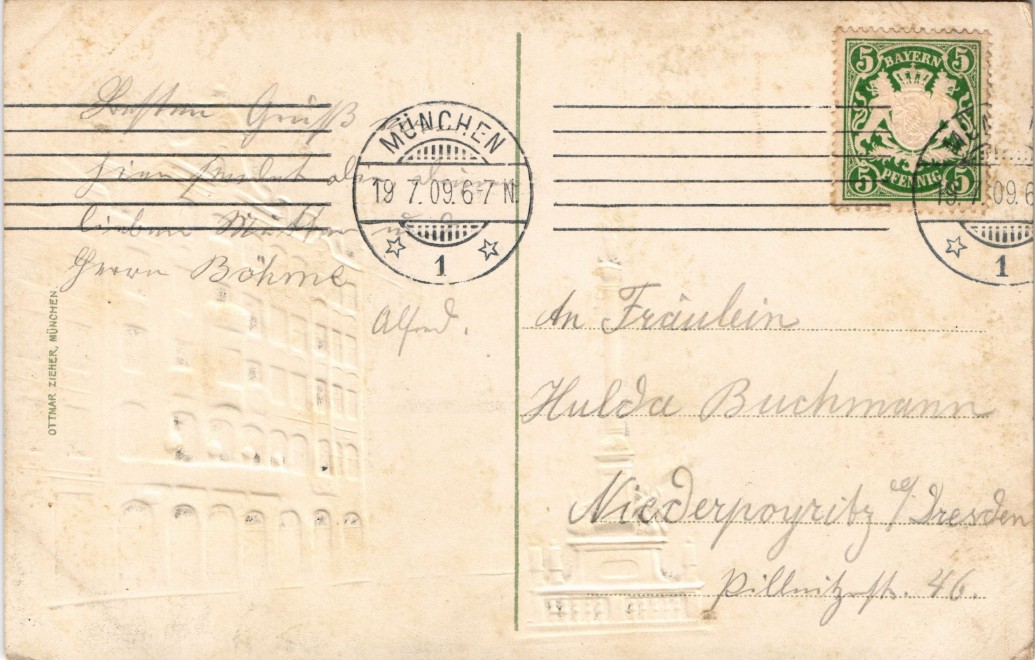 Besten Gruß
hier sendet
lieben Mutter u.
Herrn Böhme
Alfred.
OTTMAR ZIEHER, MÜNCHEN
MÜNCHEN
19 7.09.6-7 N.
1
5 BAYERN 5
5 PFENNIG 5
19 7.09.6
1
An Fräulein
Hulda Buchmann
Niederpoyritz a/Dresden
Pillnitzstr. 46.